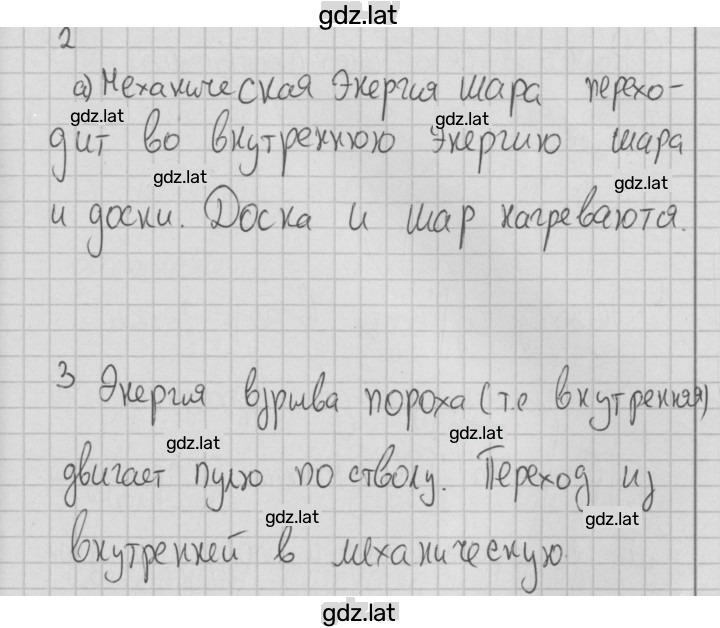 gdz.lat
2
а) Механическая Энергия шара перехо-
gdz.lat gdz.lat
дит во внутреннюю Энергию шара
gdz.lat gdz.lat
и доски. Доска и шар нагреваются.
gdz.lat gdz.lat
3 Энергия взрыва пороха (т.е внутренняя)
gdz.lat gdz.lat
двигает пулю по стволу. Переход из
gdz.lat gdz.lat
внутренней в механическую.
gdz.lat